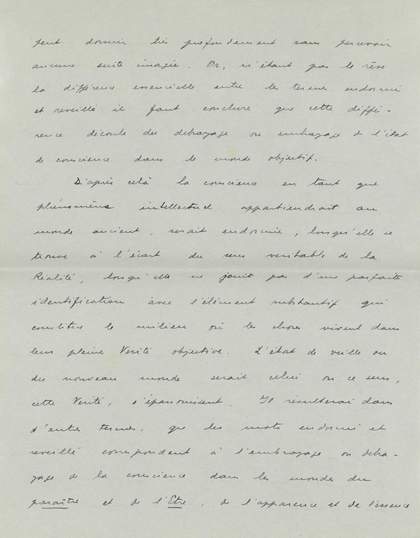 peut dormir très profondément sans percevoir
aucune suite imagée. Or, n'étant pas le rêve
la différence essencielle entre les termes endormi
et reveillé il faut conclure que cette diffé-
rence découle du debrayage ou embrayage de l'état
de conscience dans le monde objectif.
D'après celà la conscience en tant que
phénomène intellectuel appartiendrait au
monde ancient, serait endormie, lorsqu'elle se
trouve à l'écart du sens veritable de la
Réalité, lorsqu'elle ne jouit pas d'une parfaite
identification avec l'élément substantif qui
constitue le milieu où les choses vivent dans
leur pleine Verité objective. L'état de veille ou
du nouveau monde serait celui où ce sens,
cette Verité, s'épanouissent. Il résulterai dans
d'autres termes, que les mots endormi et
reveillé correspondent à l'embrayage ou debra-
yage de la conscience dans les mondes du
paraître et de l'Etre, de l'apparence et de l'essence